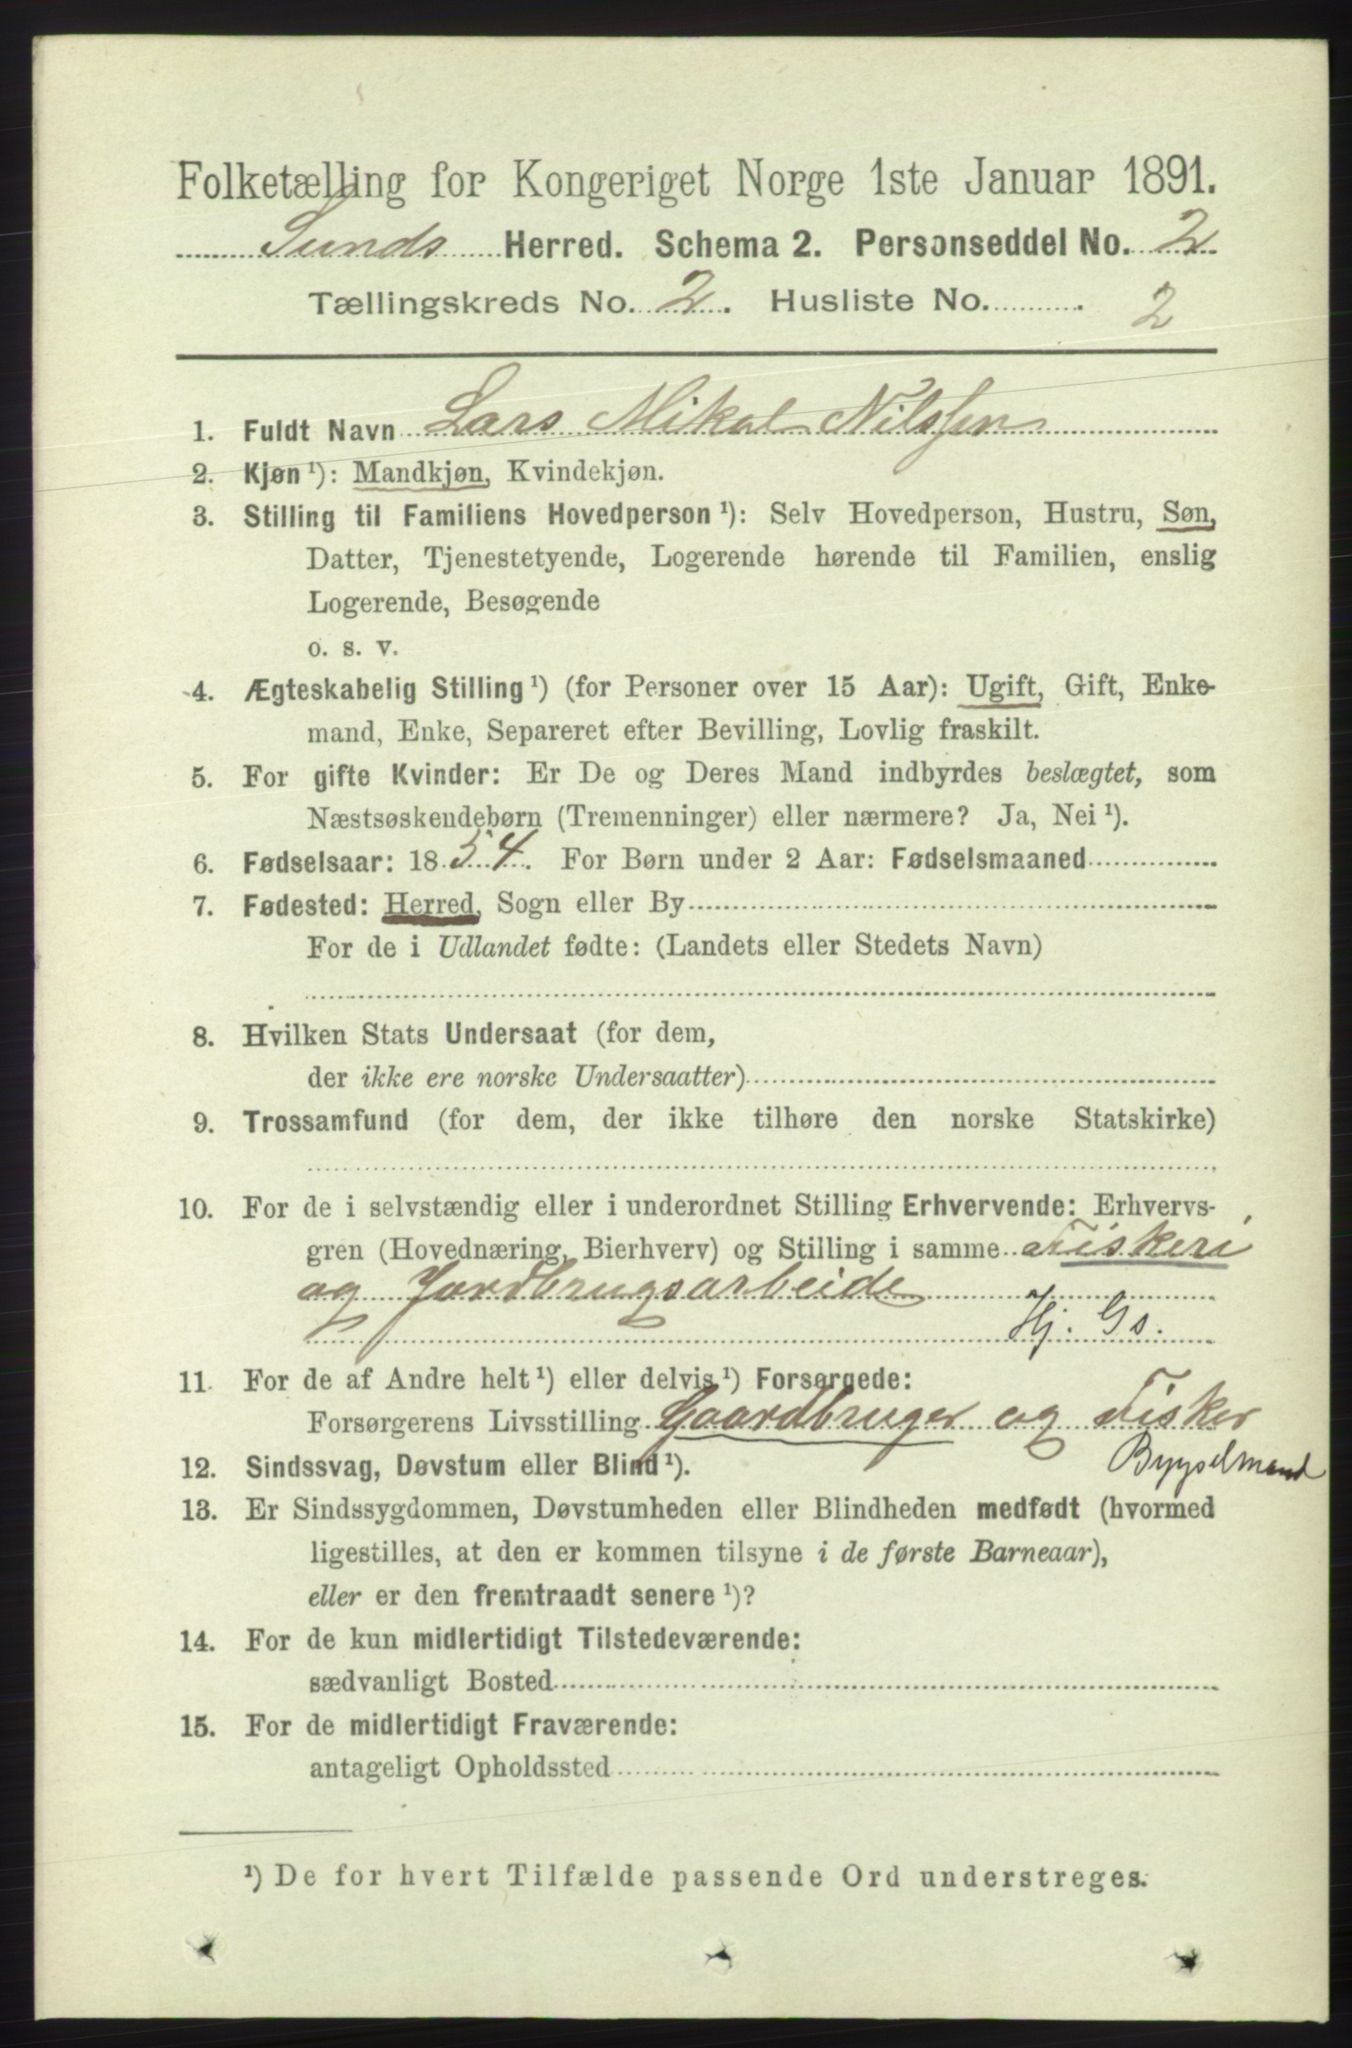 Folketælling for Kongeriget Norge 1ste Januar 1891.
Sunds Herred. Schema 2. Personseddel No. 2
Tællingskreds No. 2. Husliste No. 2
1. Fuldt Navn Lars Mikal Nilssen
2. Kjøn ¹): Mandkjøn, Kvindekjøn.
3. Stilling til Familiens Hovedperson ¹): Selv Hovedperson, Hustru, Søn,
Datter, Tjenestetyende, Logerende hørende til Familien, enslig
Logerende, Besøgende
o. s. v.
4. Ægteskabelig Stilling ¹) (for Personer over 15 Aar): Ugift, Gift, Enke-
mand, Enke, Separeret efter Bevilling, Lovlig fraskilt.
5. For gifte Kvinder: Er De og Deres Mand indbyrdes beslægtet, som
Næstsøskendebørn (Tremenninger) eller nærmere? Ja, Nei ¹).
6. Fødselsaar: 1854. For Børn under 2 Aar: Fødselsmaaned
7. Fødested: Herred, Sogn eller By
For de i Udlandet fødte: (Landets eller Stedets Navn)
8. Hvilken Stats Undersaat (for dem,
der ikke ere norske Undersaatter)
9. Trossamfund (for dem, der ikke tilhøre den norske Statskirke)
10. For de i selvstændig eller i underordnet Stilling Erhvervende: Erhvervs-
gren (Hovednæring, Bierhverv) og Stilling i samme Fiskeri
og Jordbrugsarbeide
Hj. Gs.
11. For de af Andre helt ¹) eller delvis ¹) Forsørgede:
Forsørgerens Livsstilling Gaardbruger og Fisker
Bygselmand
12. Sindssvag, Døvstum eller Blind ¹).
13. Er Sindssygdommen, Døvstumheden eller Blindheden medfødt (hvormed
ligestilles, at den er kommen tilsyne i de første Barneaar),
eller er den fremtraadt senere ¹)?
14. For de kun midlertidigt Tilstedeværende:
sædvanligt Bosted
15. For de midlertidigt Fraværende:
antageligt Opholdssted
¹) De for hvert Tilfælde passende Ord understreges.